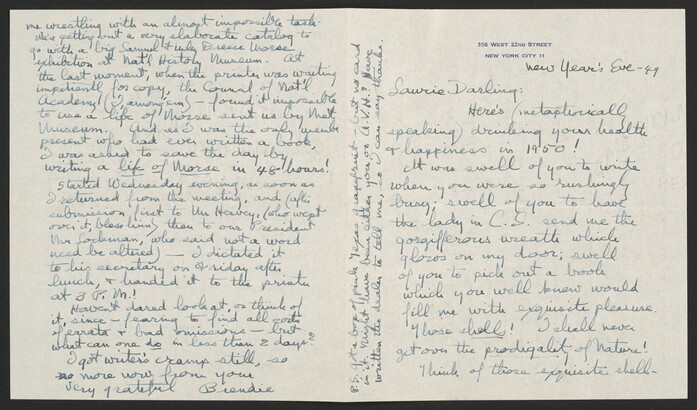 356 WEST 22ND STREET
NEW YORK CITY 11
New Year's Eve - 49
Laurie Darling:
Here's (metaphorically
speaking) drinking your health
& happiness in 1950!
It was swell of you to write
when you were so rushingly
busy; swell of you to have
the lady in C.E. send me the
gorgifferous wreath which
glows on my door; swell
of you to pick out a book
which you well knew would
fill me with exquisite pleasure.
Those shells! I shall never
get over the prodigality of Nature!
Think of those exquisite shell-
me wrestling with an almost impossible task.
We're getting out a very elaborate catalog to
go with a big Samuel Finley Breese Morse
exhibition at Nat'l History Museum. At
the last moment, when the printer was waiting
impatiently for copy, the Council of Nat'l
Academy (I, among em) - found it impossible
to use a life of Morse sent us by Nat
Museum. And as I was the only member
present who had ever written a book,
I was asked to save the day by
writing a life of Morse in 48 hours!
Started Wednesday evening, as soon as
I returned from the meeting, and (after
submission first to Mr Hervey, (who wept
over it, bless him) then to our President
Mr Lockman, who said not a word
need be altered) - I dictated it
to his secretary on Friday after
lunch, & handed it to the printer
at 3 P.M.!
Haven't dared look at, or think of
it, since - fearing to find all sorts
of errata & bad omissions - but
what can one do in less than 2 days?
I got writer's cramp still, so
no more now from your
very grateful Brendie
P.S. Got a box of pink grapes grapefruit - but no card
in it. Might have been either yours or V.H.! Have
written the dealer to tell me, so I can say thanks.